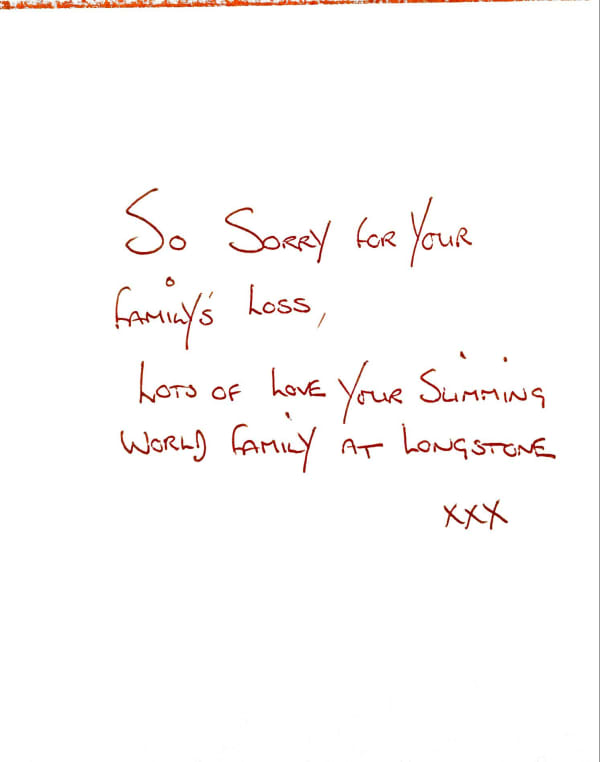 So Sorry for Your
Family's Loss,
Lots of Love Your Slimming
World Family at Longstone
xxx